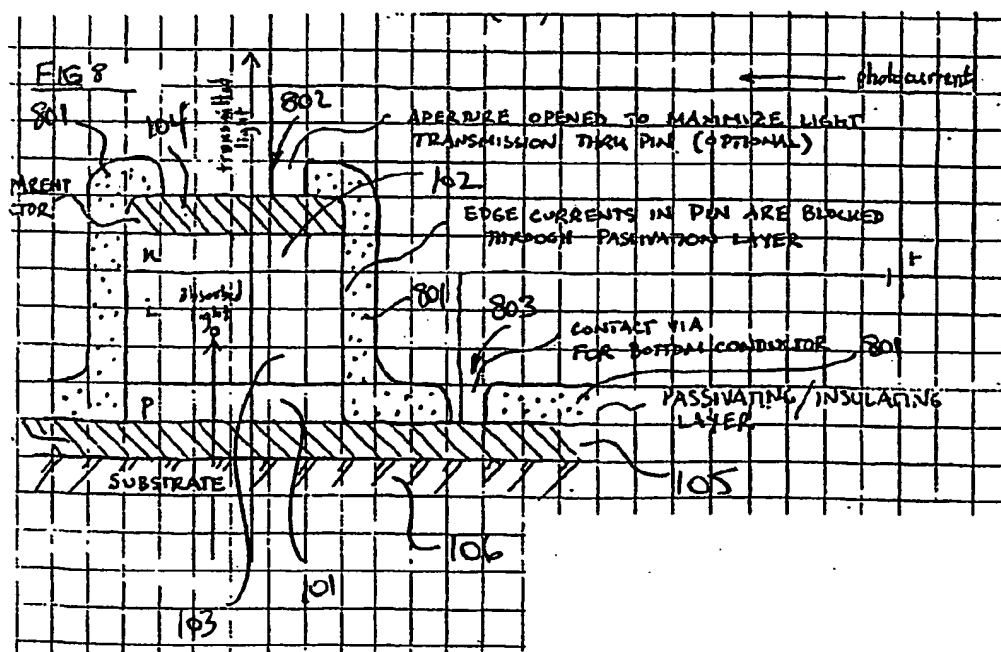 FIG 8
801
104
transmitted light
802
photocurrent
APERTURE OPENED TO MAXIMIZE LIGHT
TRANSMISSION THRU PIN (OPTIONAL)
102
EDGE CURRENTS IN PIN ARE BLOCKED
THROUGH PASSIVATION LAYER
n
801
803
CONTACT VIA
FOR BOTTOM CONDUCTOR
801
P
PASSIVATING/INSULATING
LAYER
SUBSTRATE
105
106
101
103